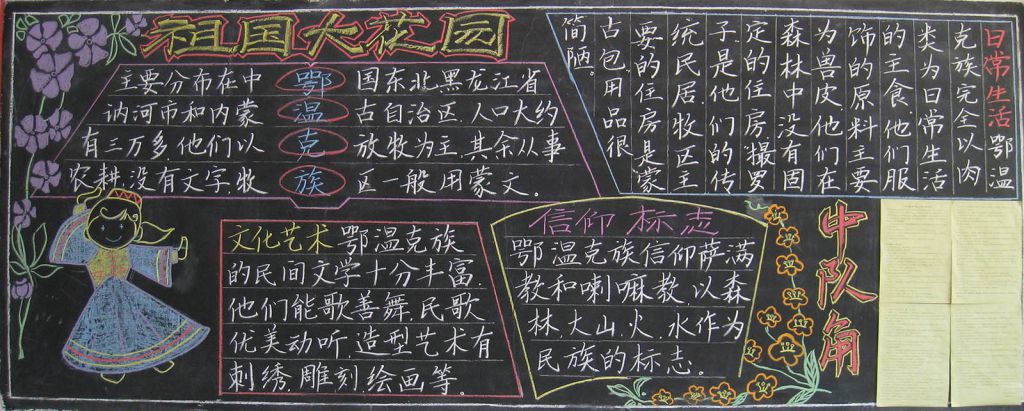 祖国大花园
主要分布在中 鄂 国东北黑龙江省
讷河市和内蒙 温 古自治区,人口大约
有三万多,他们以 克 放牧为主,其余从事
农耕,没有文字,牧 族 区一般用蒙文。
日常生活 鄂温
克族完全以肉
类为日常生活
的主食他们服
饰的原料主要
为兽皮他们在
森林中没有固
定的住房,撮罗
子是他们的传
统民居,牧区主
要的住房是蒙
古包,用品很
简陋。
文化艺术 鄂温克族
的民间文学十分丰富,
他们能歌善舞,民歌
优美动听,造型艺术有
刺绣,雕刻绘画等。
信仰标志
鄂温克族信仰萨满
教和喇嘛教,以森
林,大山火,水作为
民族的标志。
中队角